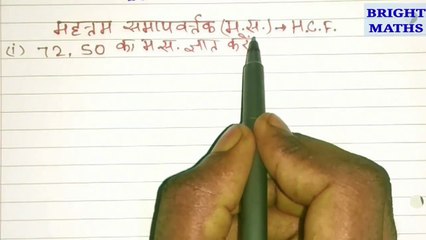 महत्तम समापवर्तक (म.स.) → H.C.F.
(i) 72, 50 का म.स. ज्ञात करें
BRIGHT
MATHS